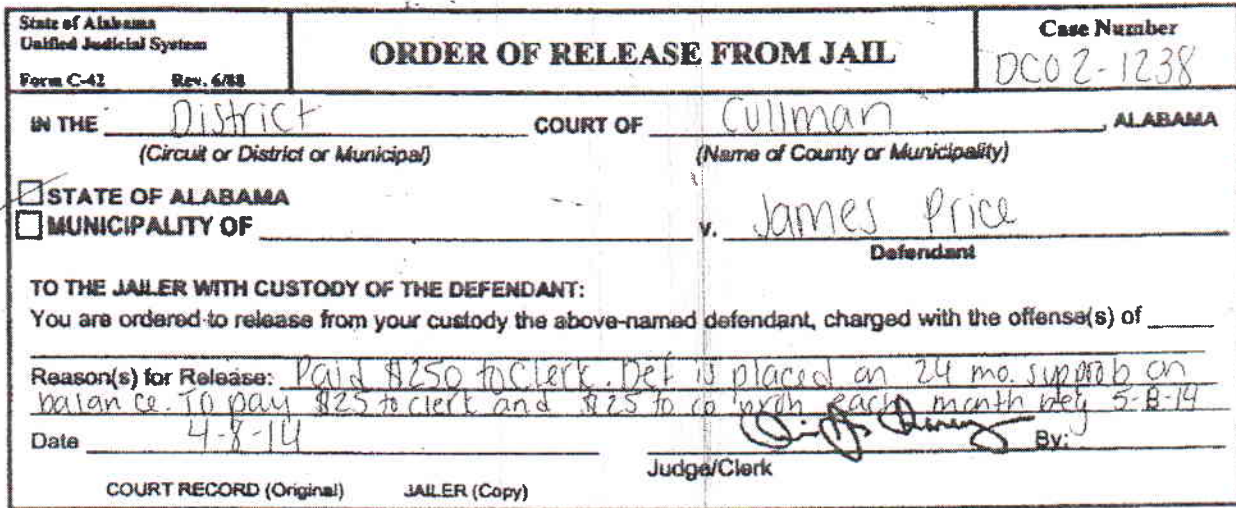 State of Alabama
Unified Judicial System
Form C-42 Rev. 6/88
ORDER OF RELEASE FROM JAIL
Case Number
DC02-1238
IN THE District COURT OF Cullman, ALABAMA
(Circuit or District or Municipal) (Name of County or Municipality)
STATE OF ALABAMA
MUNICIPALITY OF v. James Price
Defendant
TO THE JAILER WITH CUSTODY OF THE DEFENDANT:
You are ordered to release from your custody the above-named defendant, charged with the offense(s) of
Reason(s) for Release: Paid $250 to Clerk. Def is placed on 24 mo. sup prob on
balance. To pay $25 to clerk and $25 to co prob each month beg 5-8-14
Date 4-8-14 By:
Judge/Clerk
COURT RECORD (Original) JAILER (Copy)